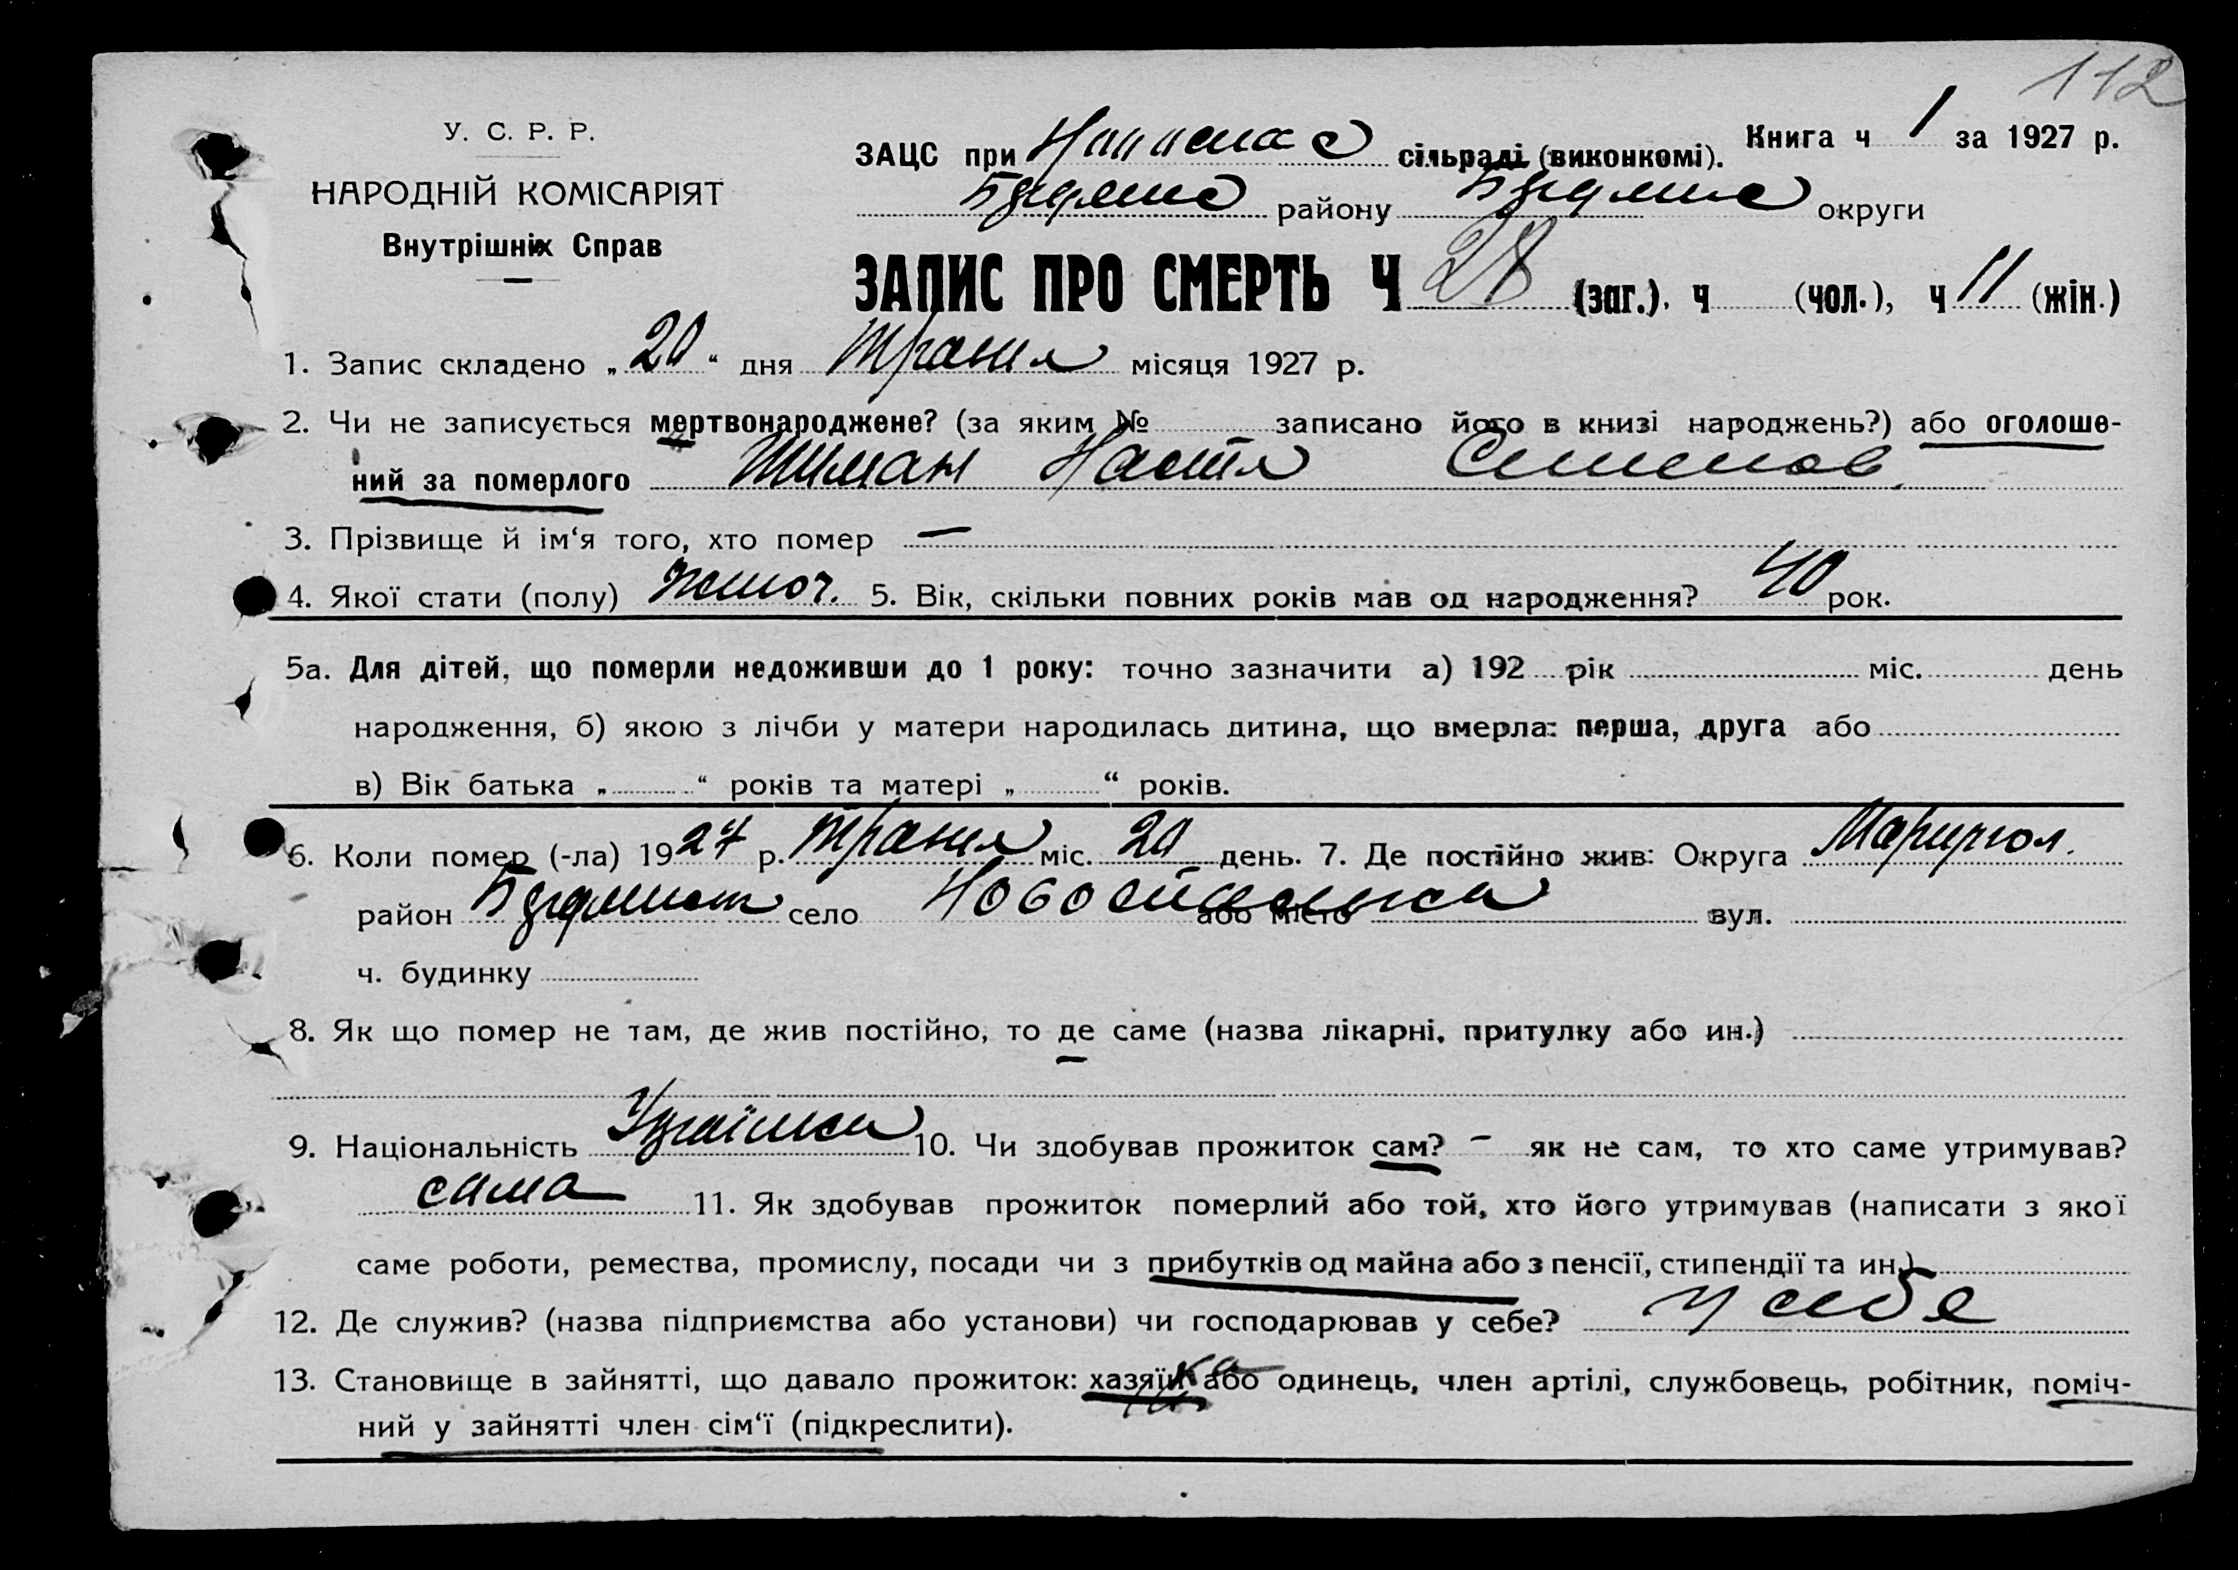 112
У. С. Р. Р.
НАРОДНІЙ КОМІСАРІЯТ
Внутрішніх Справ
ЗАЦС при сільраді (виконкомі). Книга ч 1 за 1927 р.
району округи
ЗАПИС ПРО СМЕРТЬ Ч 28 (заг.). ч (чол.), ч 11 (жін.)
1. Запис складено „ 20 “ дня Травня місяця 1927 р.
2. Чи не записується мертвонароджене? (за яким № записано його в книзі народжень?) або оголоше-
ний за померлого Шиман Настя
3. Прізвище й ім‘я того, хто помер —
4. Якої стати (полу) жіноч. 5. Вік, скільки повних років мав од народження? 40 рок.
5а. Для дітей, що померли недоживши до 1 року: точно зазначити а) 192 рік міс. день
народження, б) якою з лічби у матери народилась дитина, що вмерла: перша, друга або
в) Вік батька „ “ років та матері „ “ років.
6. Коли помер (-ла) 1927 р. Травня міс. 20 день. 7. Де постійно жив: Округа Маріупол.
район село або місто вул.
ч. будинку
8. Як що помер не там, де жив постійно, то де саме (назва лікарні, притулку або ин.)
9. Національність Українка 10. Чи здобував прожиток сам? – як не сам, то хто саме утримував?
сама 11. Як здобував прожиток померлий або той, хто його утримував (написати з якої
саме роботи, ремества, промислу, посади чи з прибутків од майна або з пенсії, стипендії та ин.)
12. Де служив? (назва підприємства або установи) чи господарював у себе? у себе
13. Становище в зайнятті, що давало прожиток: хазяїн або одинець, член артілі, службовець, робітник, поміч-
ний у зайнятті член сім‘ї (підкреслити).